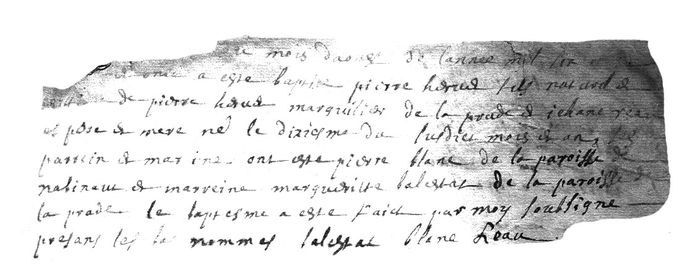 mois daoust de lannee mil six
a este baptise pierre heraud fils naturel &
de pierre heraud marguilier de la prade & jehane
et pere & mere ne le dixiesme du susdict mois & an
parrein & marine ont este pierre blanc de la paroisse de
nabinaux & marreine margueritte lalestat de la paroisse de
la prade le baptesme a este faict par moy soubsigne
presans les sus nommes lalestat blanc